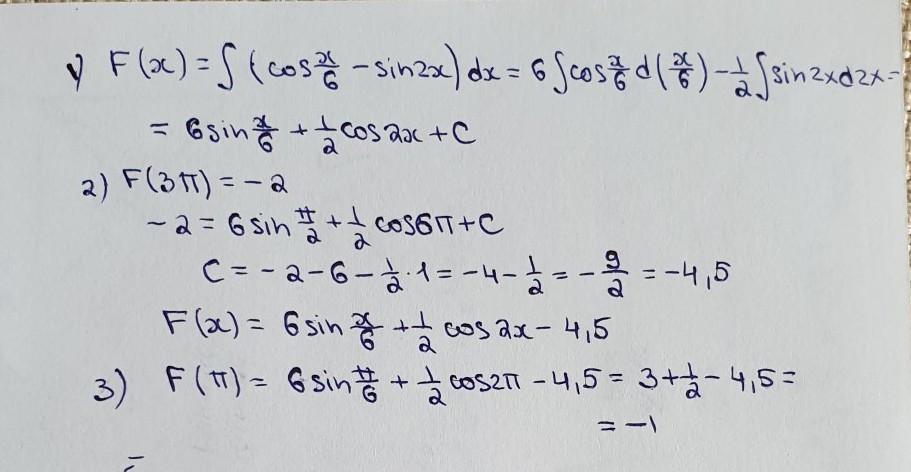 1) F(x) = ∫(cos x/6 − sin2x) dx = 6∫cos x/6 d(x/6) − 1/2 ∫sin2xd2x =
= 6sin x/6 + 1/2 cos2x + C
2) F(3π) = −2
−2 = 6sin π/2 + 1/2 cos6π + C
C = −2 − 6 − 1/2 · 1 = −4 − 1/2 = −9/2 = −4,5
F(x) = 6sin x/6 + 1/2 cos2x − 4,5
3) F(π) = 6sin π/6 + 1/2 cos2π − 4,5 = 3 + 1/2 − 4,5 =
= −1